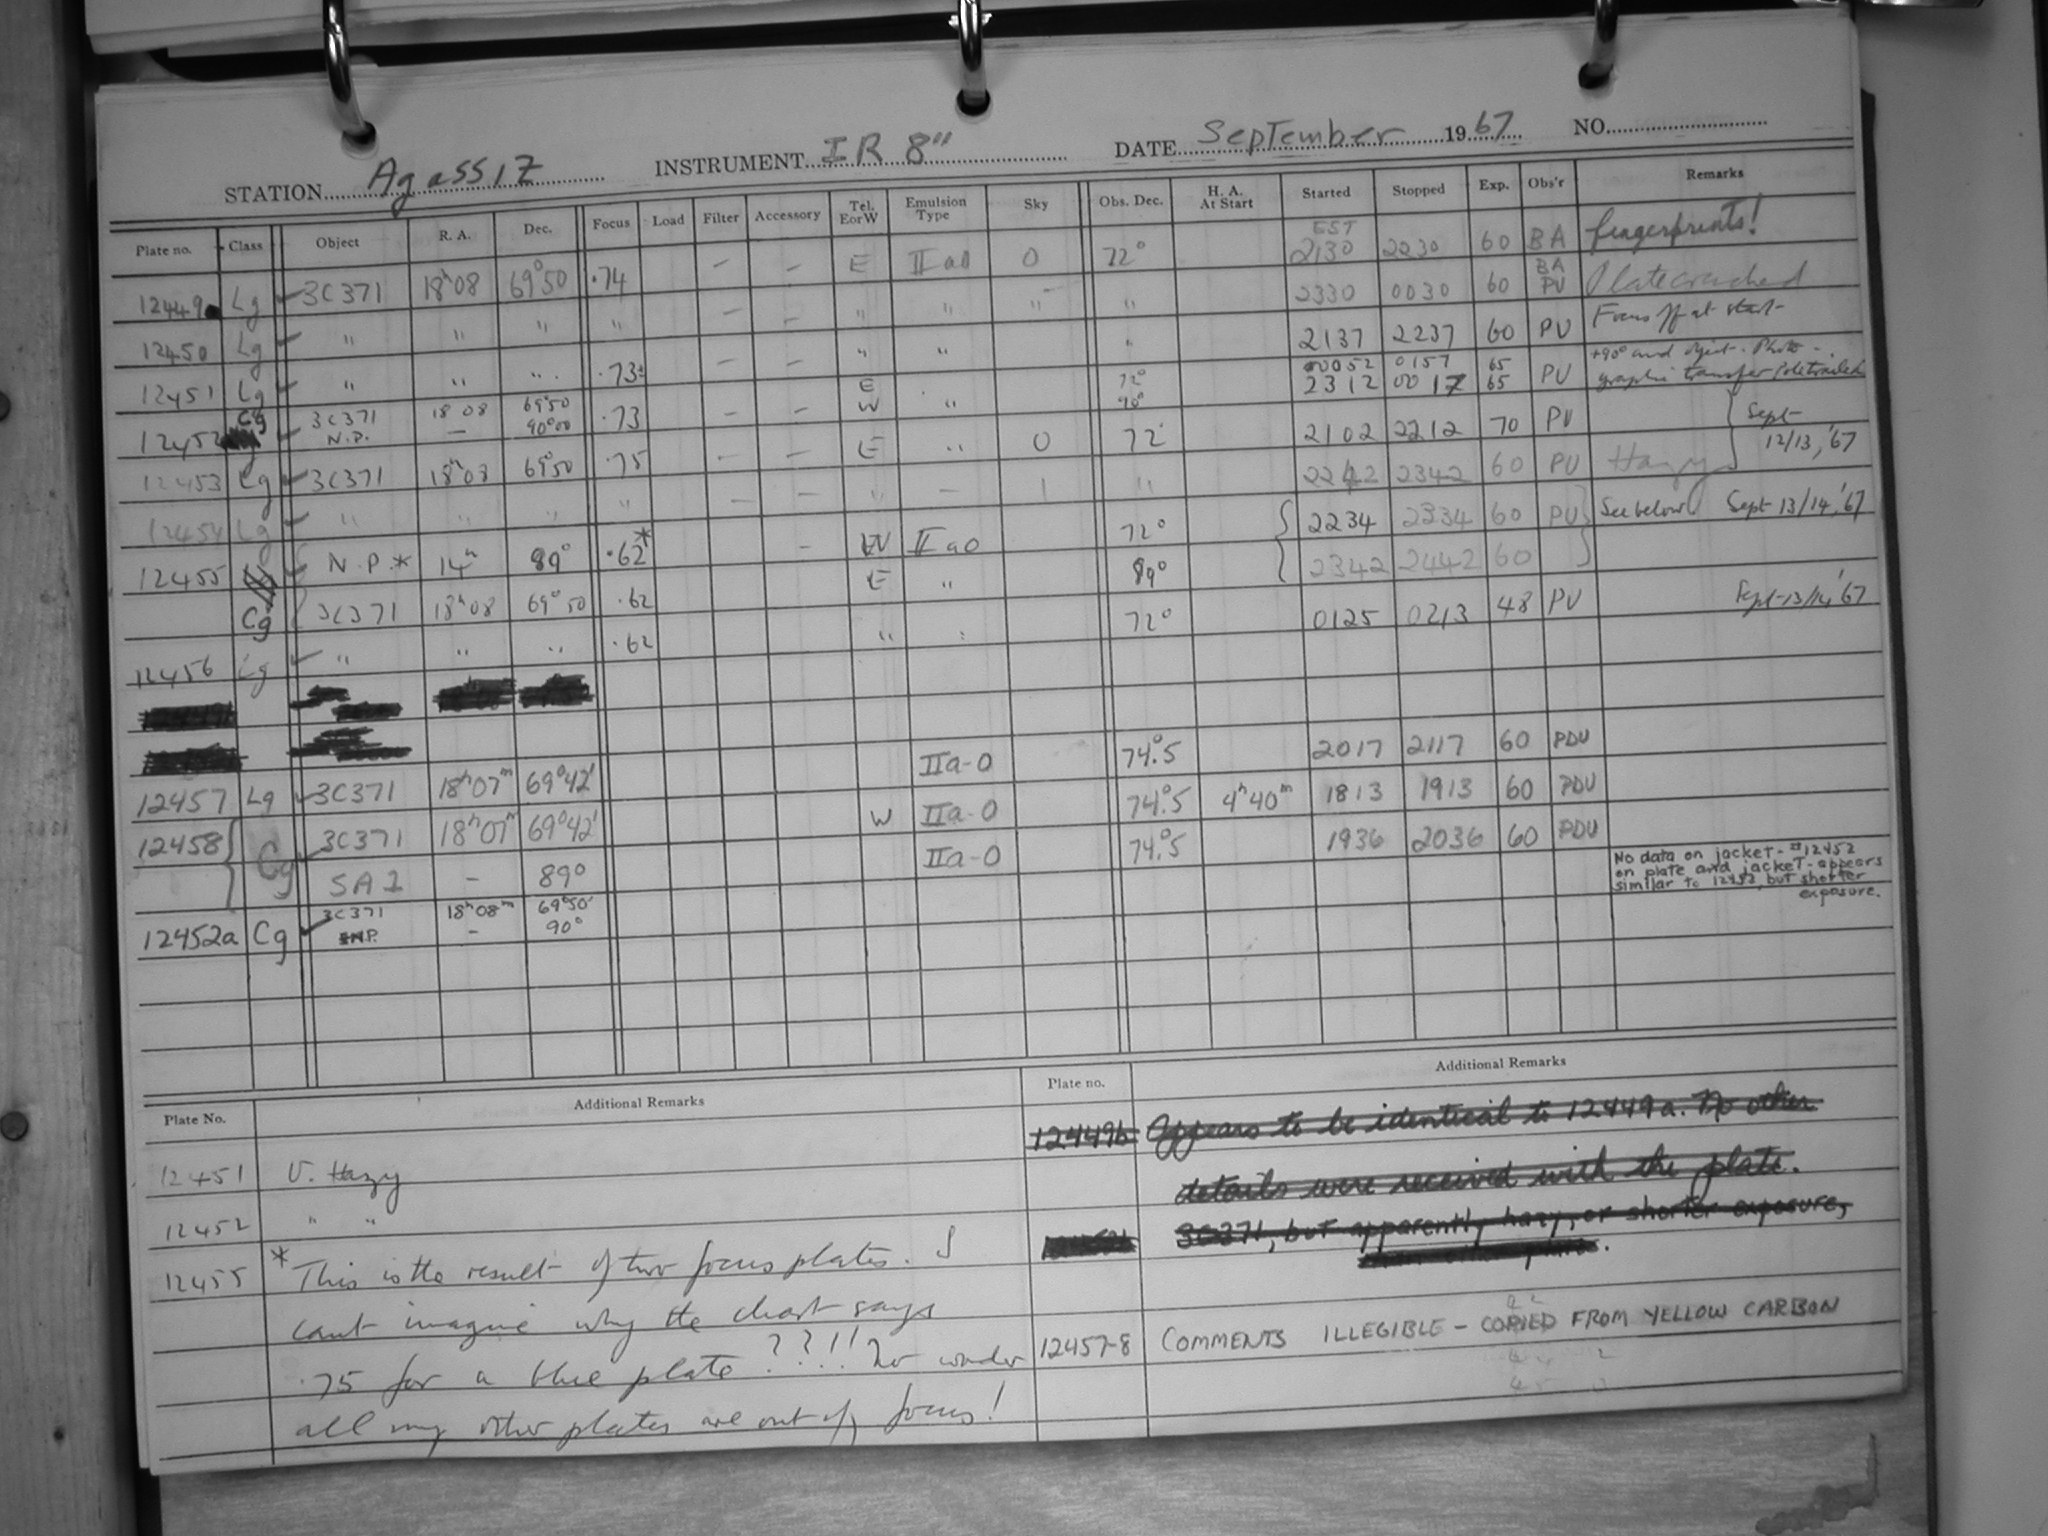 STATION Agassiz INSTRUMENT IR 8" DATE September 1967 NO.
Plate no. Class Object R. A. Dec. Focus Load Filter Accessory Tel. E or W Emulsion Type Sky Obs. Dec. H. A. At Start Started Stopped Exp. Obs'r Remarks
12449 Lg ✓ 3C371 18h08 69°50 .74 – – E IIaO O 72° EST 2130 2230 60 BA fingerprints!
12450 Lg ✓ " " " " – – " " " " 2330 0030 60 BA PV Plate cracked
12451 Lg ✓ " " " .73 – – " " " 2137 2237 60 PV Focus off at start
12452 Cg ✓ 3C371 18 08 69°50 .73 – – E " 72° 0052 0157 65 PV +90° and object. Photo-
N.P. – 90°00 W 90° 2312 0017 65 graphic transfer Pole trailed
12453 Lg ✓ 3C371 18h08 69°50 .75 – – E " O 72° 2102 2212 70 PV Sept 12/13, '67
12454 Lg ✓ " " " " – – " – 1 " 2242 2342 60 PV Hazy
12455 ✓ N.P.* 14h 89° .62* – W IIaO 72° 2234 2334 60 PV See below Sept 13/14, '67
Cg 3C371 18h08 69°50 .62 E " 89° 2342 2442 60
12456 Lg ✓ " " " .62 " " 72° 0125 0213 48 PV Sept-13/14, '67
12457 Lg ✓ 3C371 18h07m 69°42' IIa-O 74°.5 2017 2117 60 PDU
12458 Cg ✓ 3C371 18h07m 69°42' W IIa-O 74°.5 4h40m 1813 1913 60 PDU
SA 1 – 89° IIa-O 74°.5 1936 2036 60 PDU
12452a Cg ✓ 3C371 18h08m 69°50' No data on jacket - #12452
N.P. – 90° on plate and jacket - appears
similar to 12452, but shorter
exposure.
Plate No. Additional Remarks Plate no. Additional Remarks
12451 V. Hazy
12452 " "
12455 * This is the result of two focus plates. I
cant imagine why the chart says
.75 for a blue plate??!! No wonder
all my other plates are out of focus!
12449b Appears to be identical to 12449a. No other
details were received with the plate.
3C371, but apparently hazy, or shorter exposure,
12457-8 COMMENTS ILLEGIBLE - COPIED FROM YELLOW CARBON